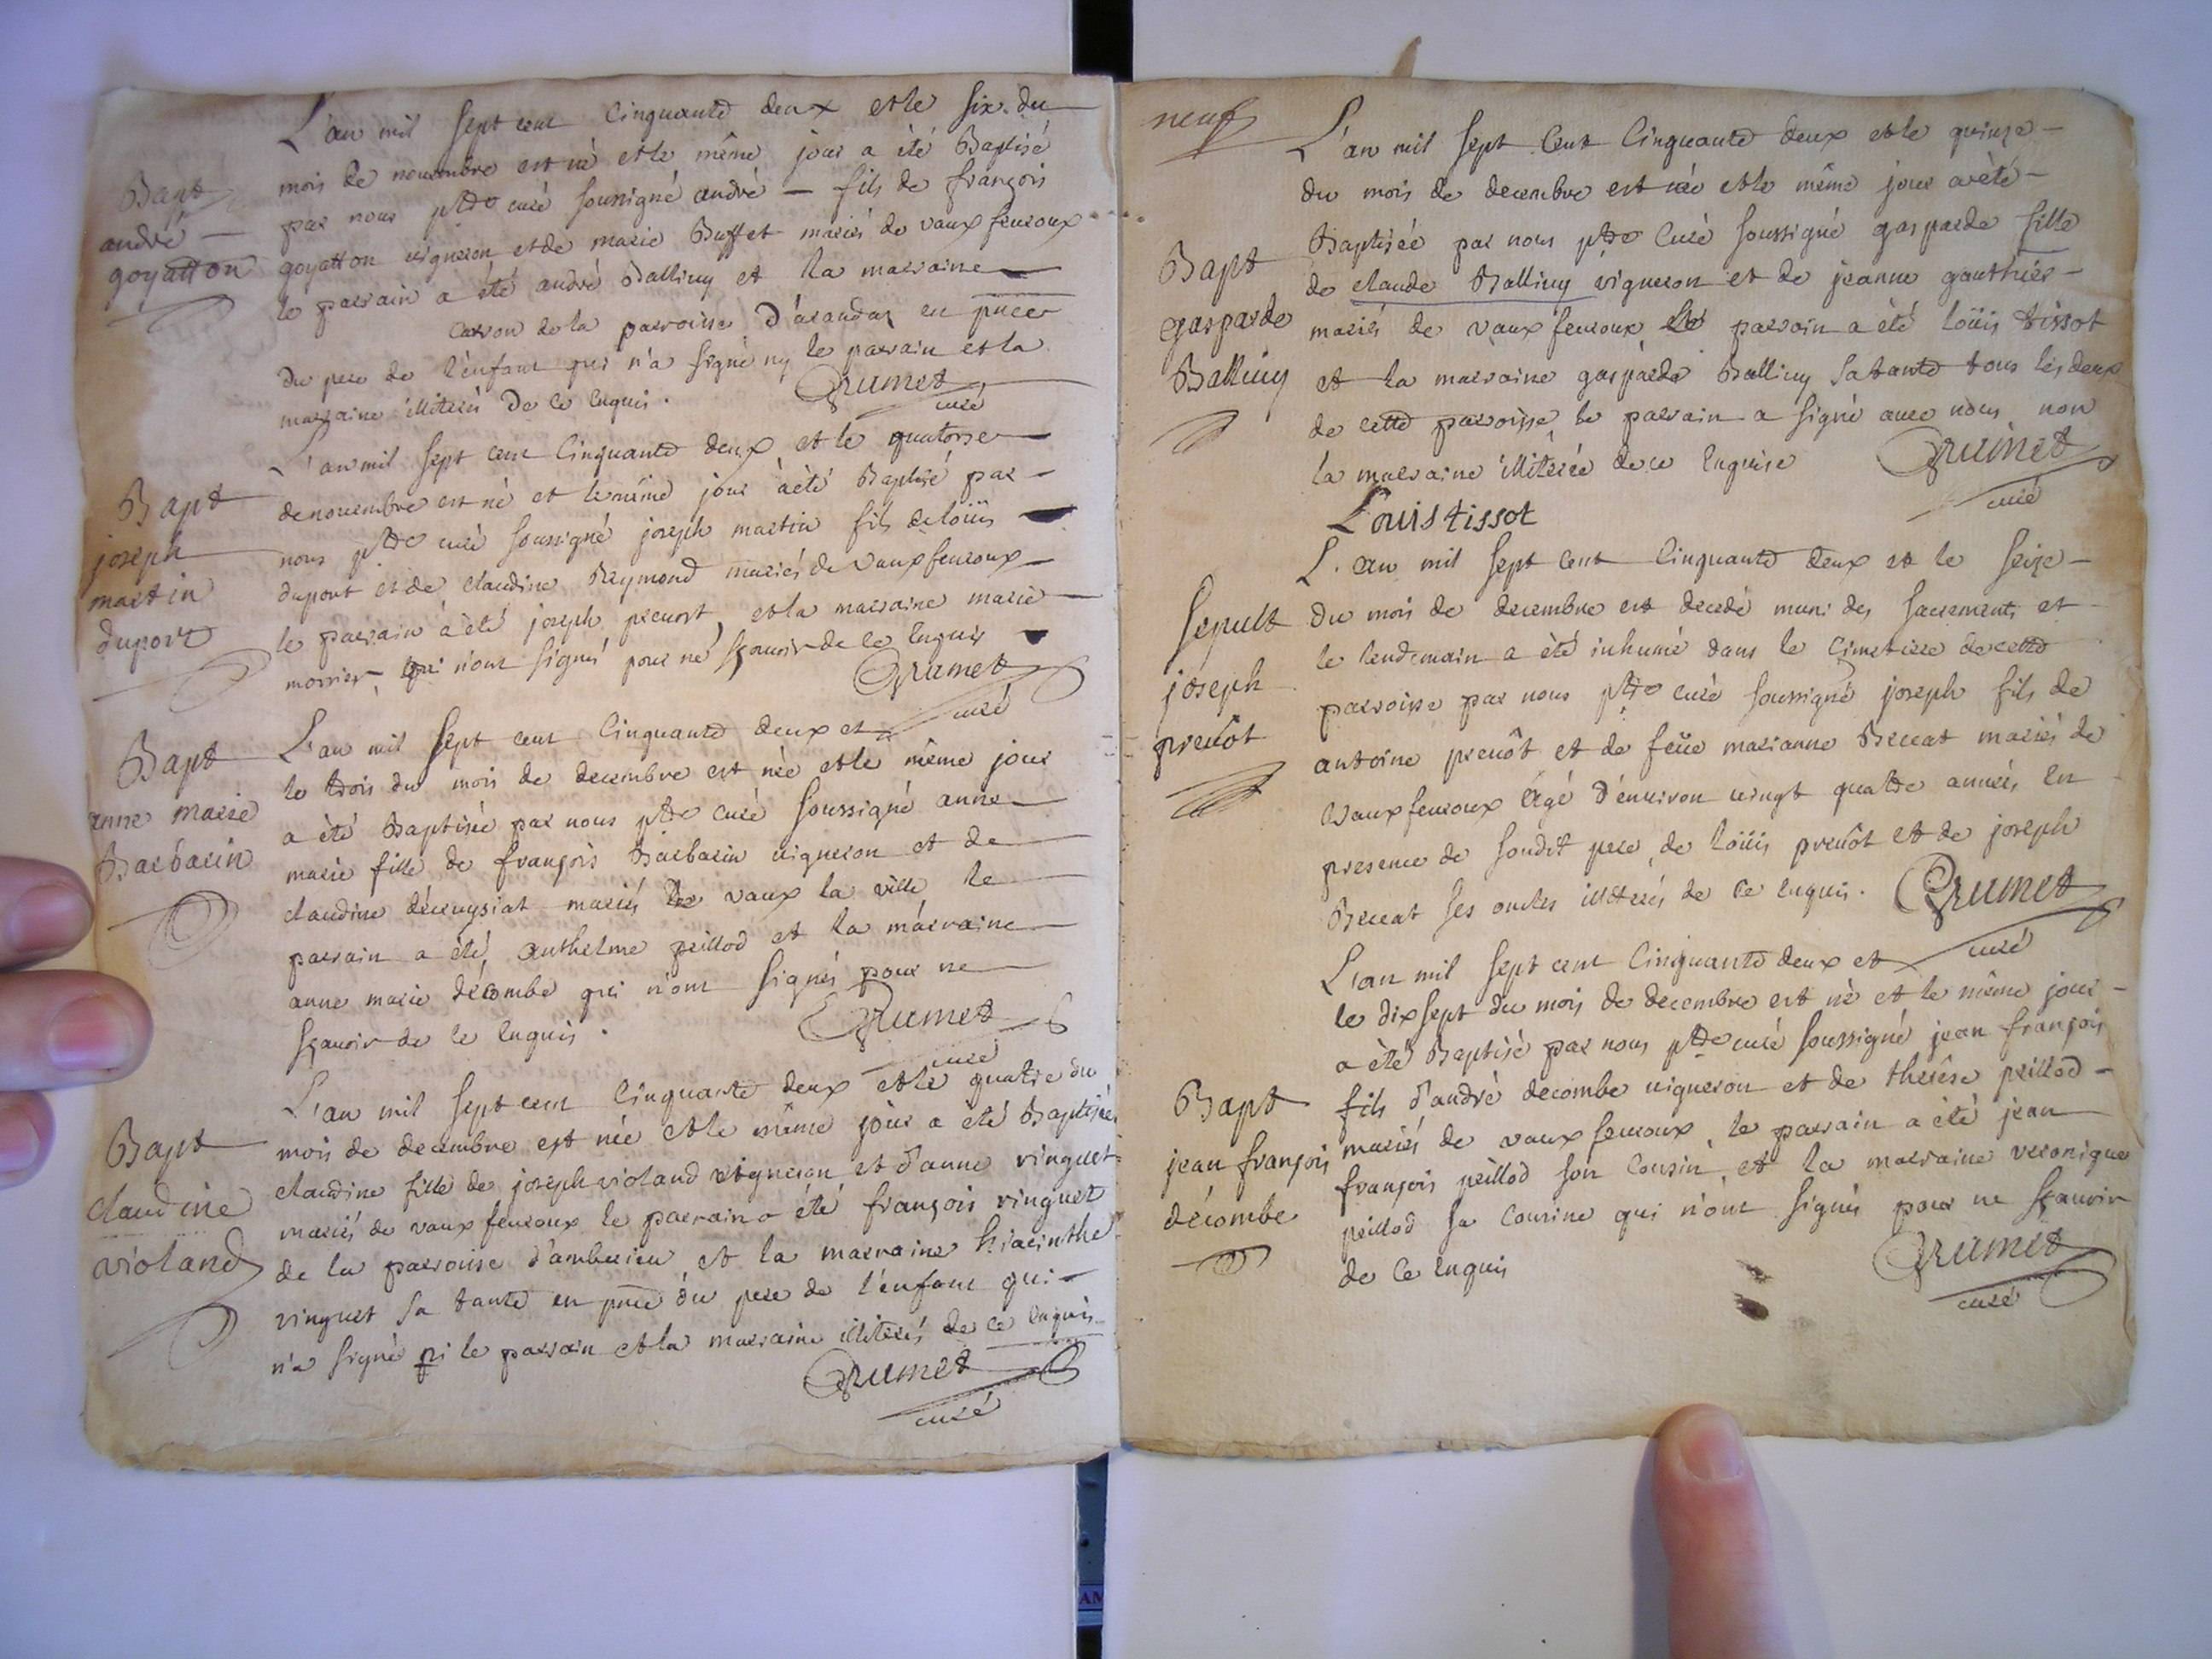 L'an mil sept cent cinquante deux et le six du
mois de novembre est né et le même jour a été Baptisé
Bapt
andré
goyatton
par nous ptre curé soussigné andré — fils de françois
goyatton vigneron et de marie Buffet mariés de vaux fevroux
le parrain a été andré Balliuy et la marraine
carron de la parroisse d'arandas en pnce
du pere de l'enfant qui n'a signé ny le parrain et la
marraine illiterés De ce enquis.
Grumet
curé
L'an mil sept cent cinquante deux et le quatorse
Bapt
joseph
martin
duport
de novembre est né et le même jour a été Baptisé par
nous ptre curé soussigné joseph martin fils de loüis
duport et de claudine Reymond mariés de vaux fevroux
le parrain a été joseph prevost, et la marraine marie
morrier qui n'ont signés pour ne sçavoir de ce enquis
Grumet
curé
Bapt
anne marie
Barbarin
L'an mil sept cent cinquante deux et
le trois du mois de decembre est née et le même jour
a été Baptisée par nous ptre curé soussigné anne
marie fille de françois Barbarin vigneron et de
claudine décruysiat mariés de vaux la ville le
parrain a été, anthelme peillod et la marraine
anne marie décombe qui n'ont signés pour ne
sçavoir de ce enquis.
Grumet
curé
L'an mil sept cent cinquante deux et le quatre du
Bapt
claudine
violand
mois de decembre est née et le même jour a été Baptisée
claudine fille de joseph violand vigneron et d'anne vinguet
mariés de vaux fevroux le parrain a été françois vinguet
de la parroisse d'amberieu et la marraine hiacinthe
vinguet sa tante en pnce du pere de l'enfant qui
n'a signé ni le parrain et la marraine illiterés de ce enquis
Grumet
curé
neuf
L'an mil sept cent cinquante deux et le quinze
du mois de decembre est née et le même jour a été
Bapt
gasparde
Balliuy
Baptisée par nous ptre curé soussigné gasparde fille
de claude Balliuy vigneron et de jeanne gauthier
mariés de vaux fevroux le parrain a été loüis tissot
et la marraine gasparde Balliuy sa tante tous les deux
de cette parroisse le parrain a signé avec nous non
la marraine illiterée de ce enquise
Grumet
curé
Louis tissot
L'an mil sept cent cinquante deux et le seize
Sepult
joseph
prevôt
du mois de decembre est decedé muni des sacrements et
le lendemain a été inhumé dans le cimetiere de cette
parroisse par nous ptre curé soussigné joseph fils de
antoine prevôt et de feüe marianne Beccat mariés de
vaux fevroux âgé d'environ vingt quatre années en
presence de soudit pere, de loüis prevôt et de joseph
Beccat ses oncles illiterés de ce enquis.
Grumet
curé
L'an mil sept cent cinquante deux et
le dix sept du mois de decembre est né et le même jour
a été Baptisé par nous ptre curé soussigné jean françois
Bapt
jean françois
décombe
fils d'andré decombe vigneron et de therése peillod
mariés de vaux fevroux, le parrain a été jean
françois peillod son cousin et la marraine veronique
peillod sa cousine qui n'ont signés pour ne sçavoir
de ce enquis
Grumet
curé